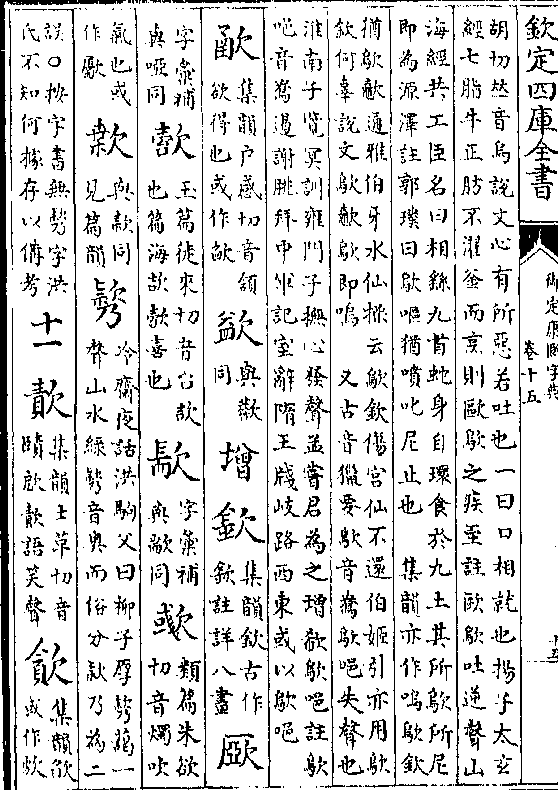 欽定四庫全書
御定康熙字典
卷十五
胡切𠀤音烏說文心有所惡若吐也一曰口相就也揚子太玄
經七脂牛正肪不濯釜而烹則歐歍之疾至註歐歍吐逆聲山
海經共工臣名曰相繇九首蛇身自環食於九土其所歍所尼
即為源澤註郭璞曰歍嘔猶噴吒尼止也 集韻亦作嗚歍欽
猶歍歔通雅伯牙水仙操云歍欽傷宮仙不還伯姬引亦用歍
欽何辜說文歍歔歍即嗚 又古音獵要歍音鴌歍唈失聲也
淮南子覽冥訓雍門子撫心發聲孟嘗君為之增欷歍唈註歍
唈音鴌遏謝朓拜中軍記室辭隋王牋岐路西東或以歍唈
集韻户感切音頷欲得也或作歃 與歡同 增 集韻欽古作欽註詳八畫
字彙補與噁同 玉篇徒來切音台欯也篇海欯喜也 字彙補與歊同 類篇朱欲切音燭吹
氣也或作厭 款 與款同見篇韻 冷齋夜話洪駒父曰柳子厚一
聲山水綠音奥而俗分款乃為二
誤曰按字書無字洪氏不知何據存以備考 十一 集韻士革切音賾語笑聲 集韻飲或作㱃